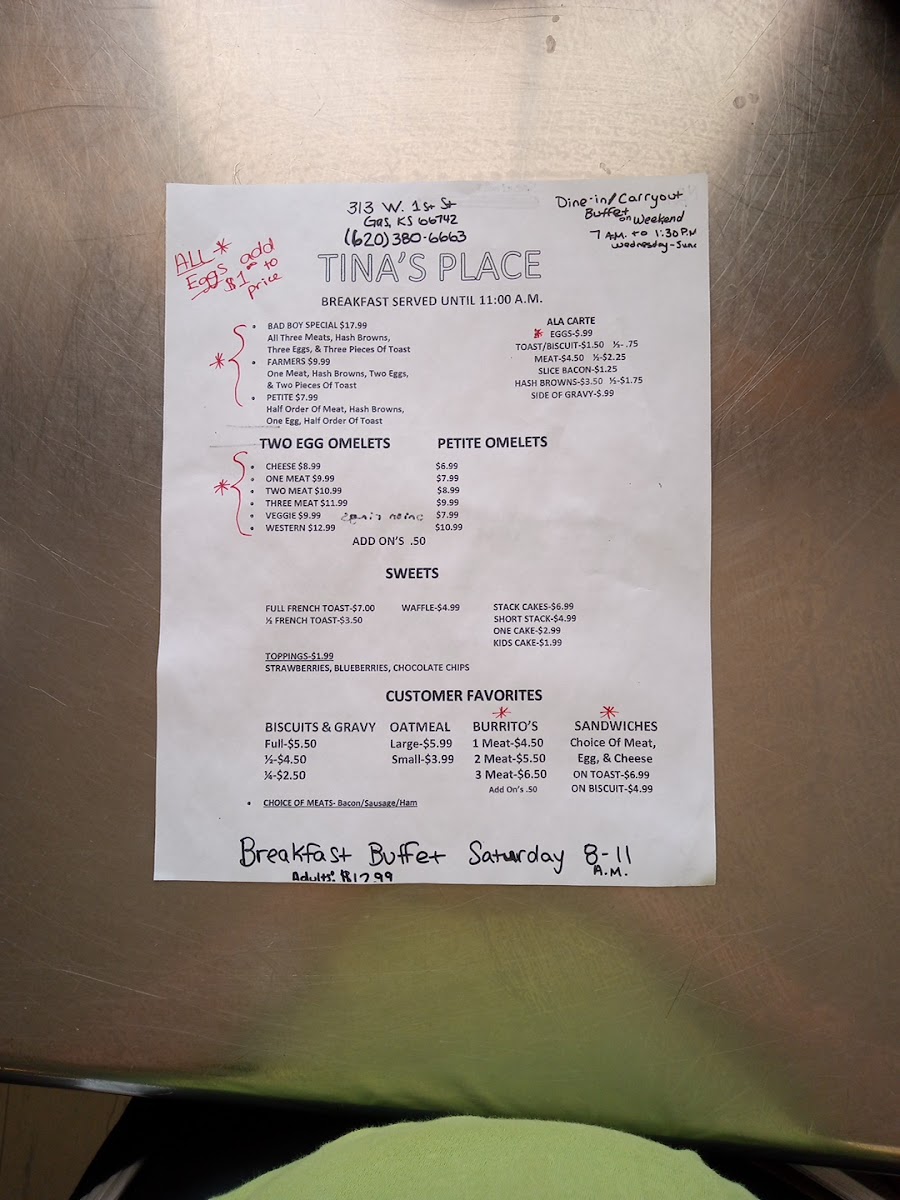 313 W. 1st St
Gas, KS 66742
(620) 380-6663
Dine-in/Carryout
Buffet on Weekend
7 A.M. to 1:30 P.M
Wednesday-Sun
ALL *
Eggs add
$1 to
price
TINA'S PLACE
BREAKFAST SERVED UNTIL 11:00 A.M.
* • BAD BOY SPECIAL $17.99
All Three Meats, Hash Browns,
Three Eggs, & Three Pieces Of Toast
• FARMERS $9.99
One Meat, Hash Browns, Two Eggs,
& Two Pieces Of Toast
• PETITE $7.99
Half Order Of Meat, Hash Browns,
One Egg, Half Order Of Toast
ALA CARTE
* EGGS-$.99
TOAST/BISCUIT-$1.50 ½-.75
MEAT-$4.50 ½-$2.25
SLICE BACON-$1.25
HASH BROWNS-$3.50 ½-$1.75
SIDE OF GRAVY-$.99
TWO EGG OMELETS PETITE OMELETS
* • CHEESE $8.99 $6.99
• ONE MEAT $9.99 $7.99
• TWO MEAT $10.99 $8.99
• THREE MEAT $11.99 $9.99
• VEGGIE $9.99 $7.99
• WESTERN $12.99 $10.99
ADD ON'S .50
SWEETS
FULL FRENCH TOAST-$7.00
½ FRENCH TOAST-$3.50
WAFFLE-$4.99
STACK CAKES-$6.99
SHORT STACK-$4.99
ONE CAKE-$2.99
KIDS CAKE-$1.99
TOPPINGS-$1.99
STRAWBERRIES, BLUEBERRIES, CHOCOLATE CHIPS
CUSTOMER FAVORITES
BISCUITS & GRAVY
Full-$5.50
½-$4.50
¼-$2.50
OATMEAL
Large-$5.99
Small-$3.99
*
BURRITO'S
1 Meat-$4.50
2 Meat-$5.50
3 Meat-$6.50
Add On's .50
*
SANDWICHES
Choice Of Meat,
Egg, & Cheese
ON TOAST-$6.99
ON BISCUIT-$4.99
• CHOICE OF MEATS- Bacon/Sausage/Ham
Breakfast Buffet Saturday 8-11
A.M.
Adults: $12.99